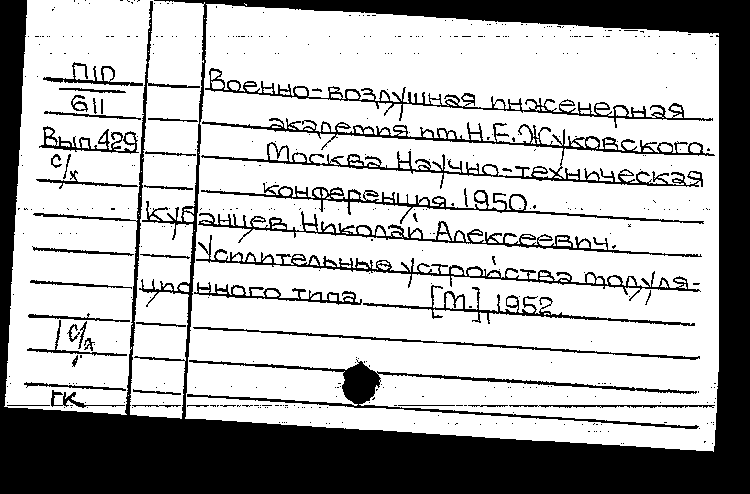 П10
611
Вып.429
с/х
Военно-воздушная инженерная
академия им. Н.Е. Жуковского.
Москва. Научно-техническая
конференция. 1950.
Кубанцев, Николай Алексеевич.
Усилительные устройства модуля-
ционного типа. [М.], 1952.
с/х
ГК